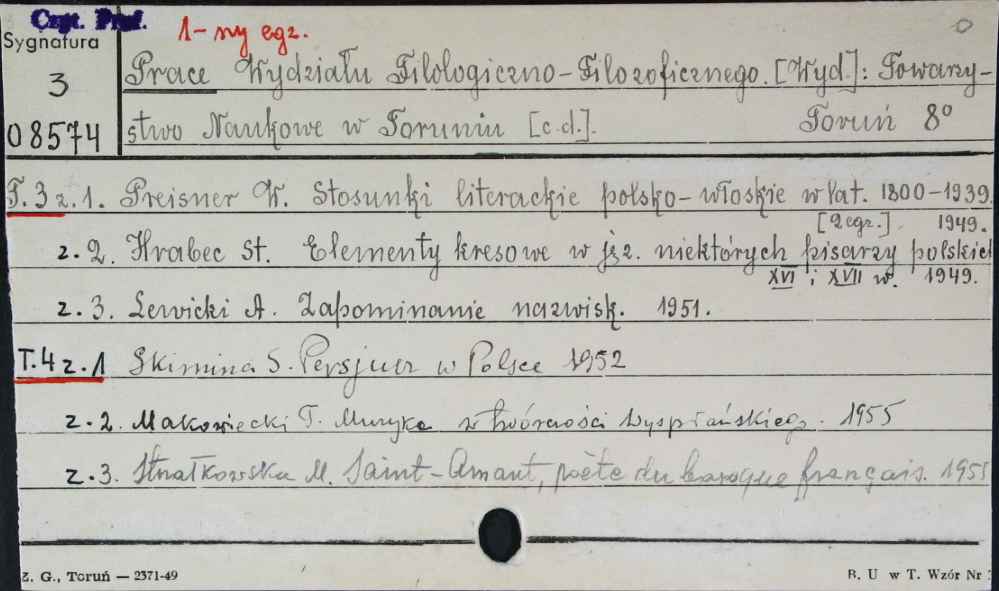 Czyt. Prof.
1-ny egz.
0
Sygnatura
3
08574
Prace Wydziału Filologiczno-Filozoficznego. [Wyd.]: Towarzy-
stwo Naukowe w Toruniu [c.d.]. Toruń 8°
T.3 z.1. Preisner W. Stosunki literackie polsko-włoskie w lat. 1800-1939.
[2 egz.] 1949.
z.2. Hrabec St. Elementy kresowe w jęz. niektórych pisarzy polskich
XVI i XVII w. 1949.
z.3. Lewicki A. Zapominanie nazwisk. 1951.
T.4 z.1 Skimina S. Persjusz w Polsce 1952
z.2. Makowiecki T. Muzyka w twórczości Wyspiańskiego. 1955
z.3. M. Saint-Amant, poète du baroque français. 195
Z. G., Toruń — 2371-49
B. U w T. Wzór Nr